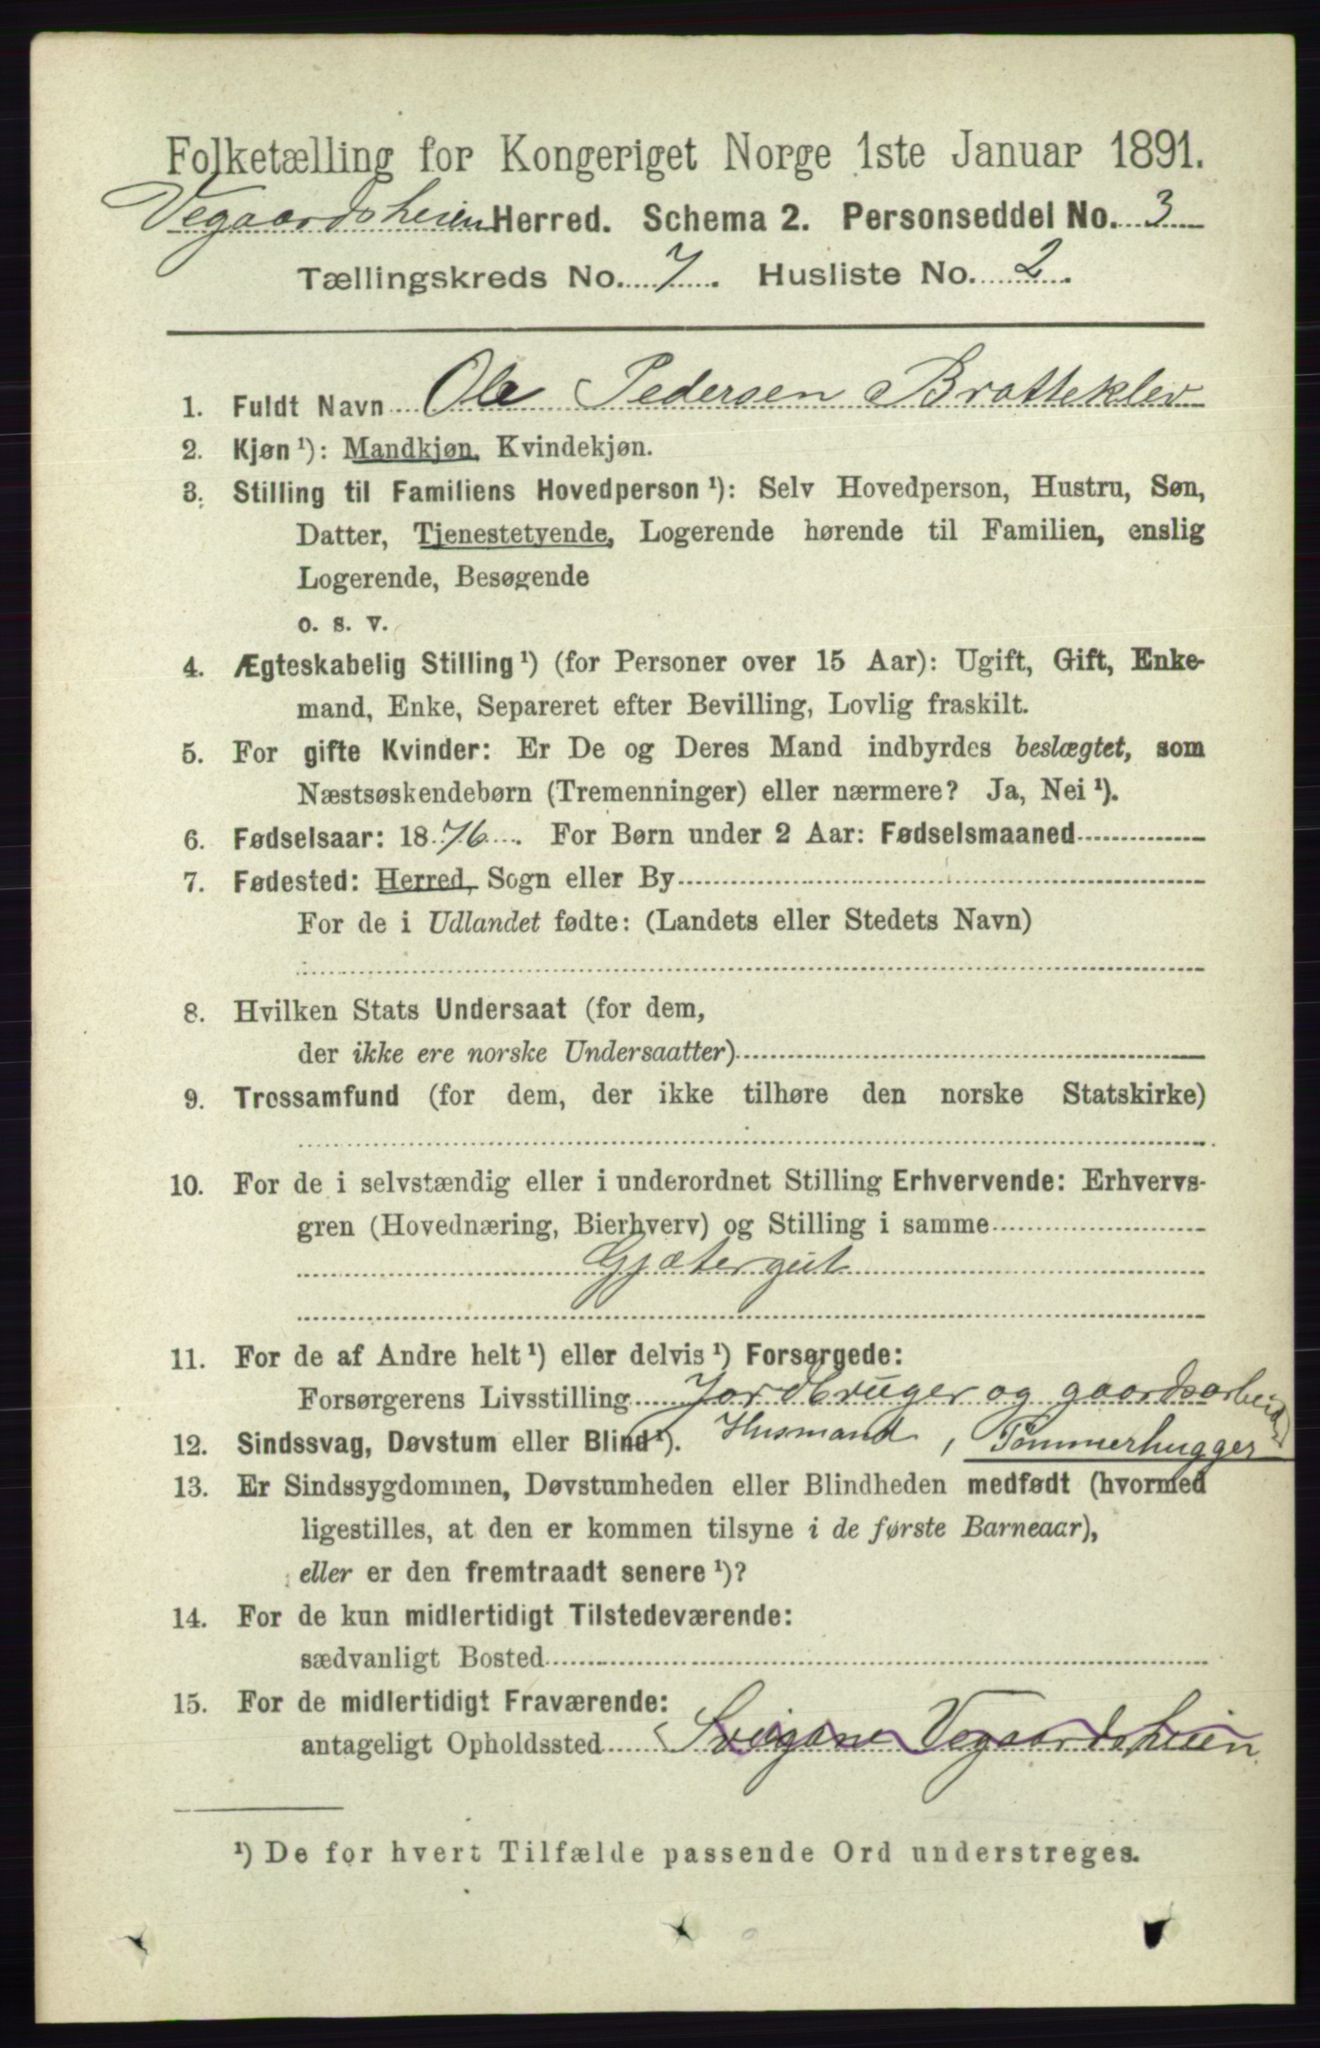 Folketælling for Kongeriget Norge 1ste Januar 1891.
Vegaardsheien Herred. Schema 2. Personseddel No. 3
Tællingskreds No. 7. Husliste No. 2.
1. Fuldt Navn Ole Pedersen Bratteklev
2. Kjøn ¹): Mandkjøn, Kvindekjøn.
3. Stilling til Familiens Hovedperson ¹): Selv Hovedperson, Hustru, Søn,
Datter, Tjenestetyende, Logerende hørende til Familien, enslig
Logerende, Besøgende
o. s. v.
4. Ægteskabelig Stilling ¹) (for Personer over 15 Aar): Ugift, Gift, Enke-
mand, Enke, Separeret efter Bevilling, Lovlig fraskilt.
5. For gifte Kvinder: Er De og Deres Mand indbyrdes beslægtet, som
Næstsøskendebørn (Tremenninger) eller nærmere? Ja, Nei ¹).
6. Fødselsaar: 1876. For Børn under 2 Aar: Fødselsmaaned
7. Fødested: Herred, Sogn eller By
For de i Udlandet fødte: (Landets eller Stedets Navn)
8. Hvilken Stats Undersaat (for dem,
der ikke ere norske Undersaatter)
9. Trossamfund (for dem, der ikke tilhøre den norske Statskirke)
10. For de i selvstændig eller i underordnet Stilling Erhvervende: Erhvervs-
gren (Hovednæring, Bierhverv) og Stilling i samme
Gjætergut
11. For de af Andre helt ¹) eller delvis ¹) Forsørgede:
Forsørgerens Livsstilling Jordbruger og gaardsarbeider
12. Sindssvag, Døvstum eller Blind ¹). Husmand, Tømmerhugger
13. Er Sindssygdommen, Døvstumheden eller Blindheden medfødt (hvormed
ligestilles, at den er kommen tilsyne i de første Barneaar),
eller er den fremtraadt senere ¹)?
14. For de kun midlertidigt Tilstedeværende:
sædvanligt Bosted
15. For de midlertidigt Fraværende:
antageligt Opholdssted Sveigane Vegaardsheien
¹) De for hvert Tilfælde passende Ord understreges.